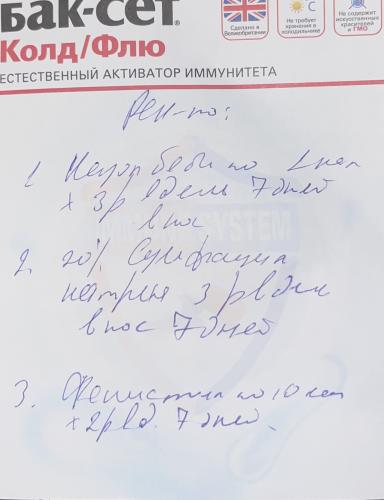 бак-сет®
Колд/Флю
ЕСТЕСТВЕННЫЙ АКТИВАТОР ИММУНИТЕТА
Сделано в
Великобритании
°C
Не требует
хранения в
холодильнике
Не содержит
искусственных
красителей
и ГМО
Рек-но:
1. беби по 1 кап
х 3 р в день 7 дней
в нос
2. 20% Сульфацил
натрия 3 р в день
в нос 7 дней
3. Фенистил по 10 кап
х 2 р в д. 7 дней.
SYSTEM